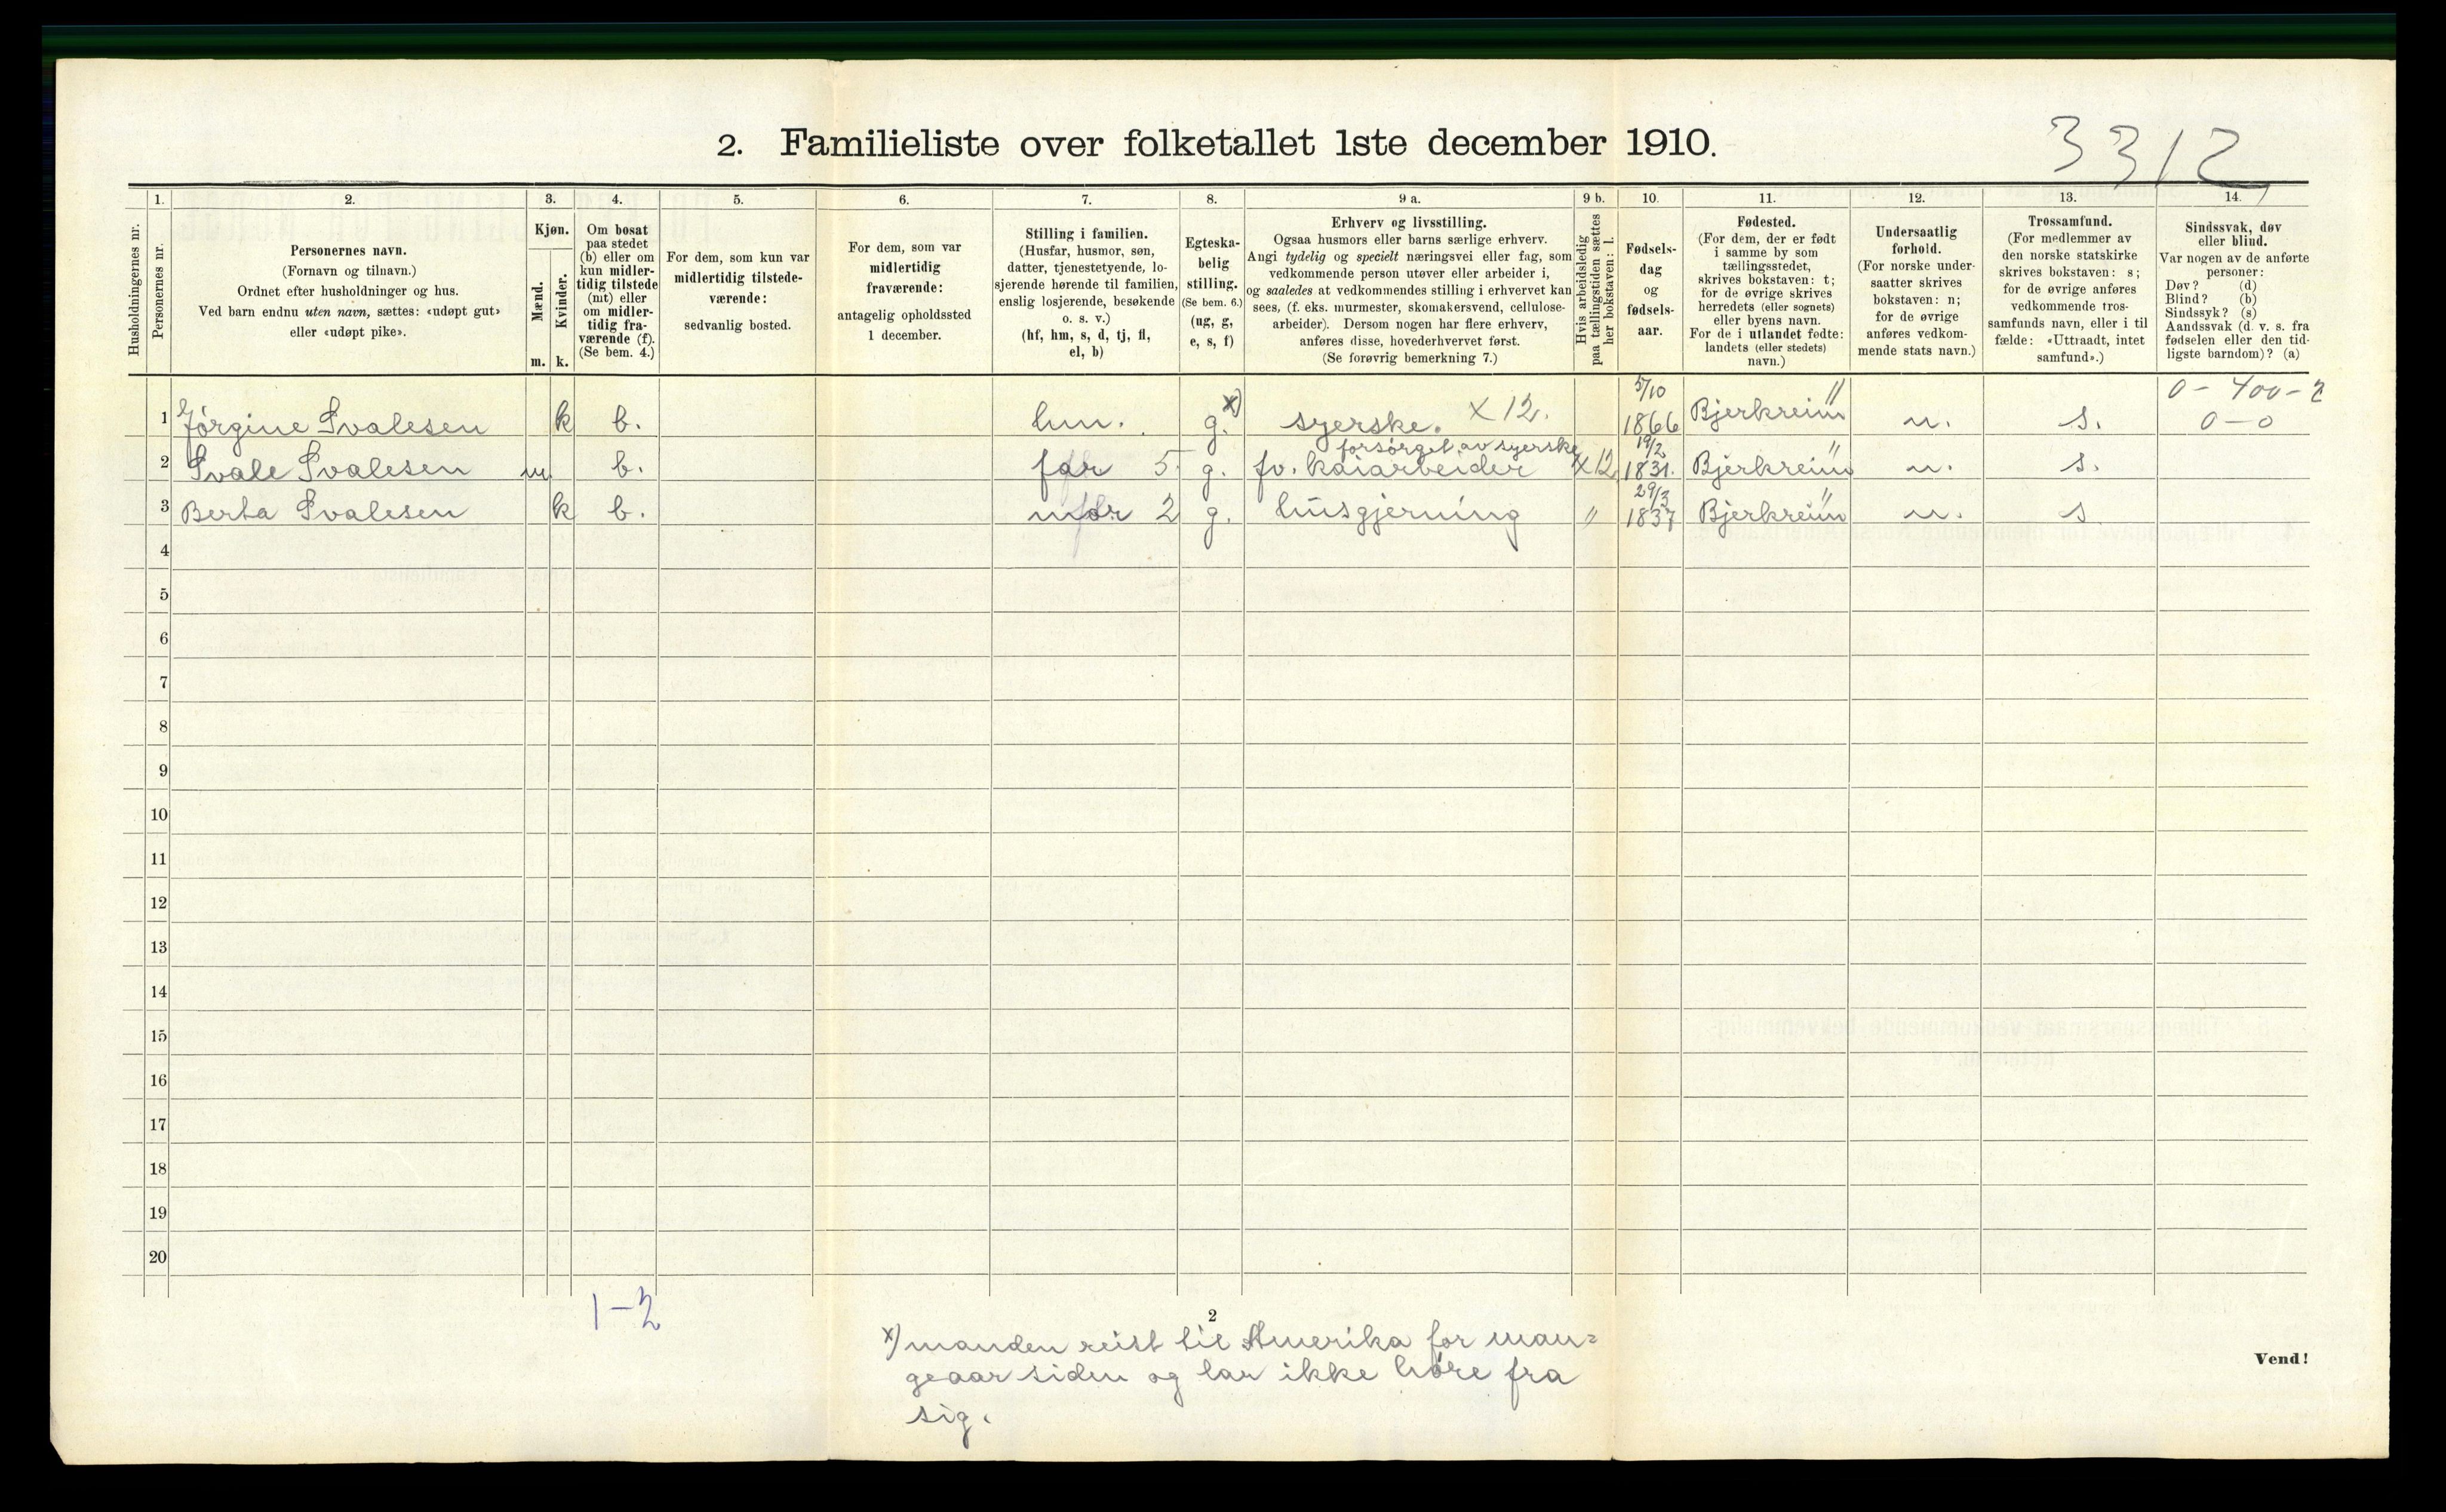 3312
2. Familieliste over folketallet 1ste december 1910.
Husholdningernes nr.
1.
Personernes nr.
2.
Personernes navn.
(Fornavn og tilnavn.)
Ordnet efter husholdninger og hus.
Ved barn endnu uten navn, sættes: «udøpt gut»
eller «udøpt pike».
3.
Kjøn.
Mænd.
Kvinder.
m. k.
4.
Om bosat
paa stedet
(b) eller om
kun midler-
tidig tilstede
(mt) eller
om midler-
tidig fra-
værende (f).
(Se bem. 4.)
5.
For dem, som kun var
midlertidig tilstede-
værende:
sedvanlig bosted.
6.
For dem, som var
midlertidig
fraværende:
antagelig opholdssted
1 december.
7.
Stilling i familien.
(Husfar, husmor, søn,
datter, tjenestetyende, lo-
sjerende hørende til familien,
enslig losjerende, besøkende
o. s. v.)
(hf, hm, s, d, tj, fl,
el, b)
8.
Egteska-
belig
stilling.
(Se bem. 6.)
(ug, g,
e, s, f)
9 a.
Erhverv og livsstilling.
Ogsaa husmors eller barns særlige erhverv.
Angi tydelig og specielt næringsvei eller fag, som
vedkommende person utøver eller arbeider i,
og saaledes at vedkommendes stilling i erhvervet kan
sees, (f. eks. murmester, skomakersvend, cellulose-
arbeider). Dersom nogen har flere erhverv,
anføres disse, hovederhvervet først.
(Se forøvrig bemerkning 7.)
9 b.
Hvis arbeidsledig
paa tællingstiden sættes
her bokstaven: l.
10.
Fødsels-
dag
og
fødsels-
aar.
11.
Fødested.
(For dem, der er født
i samme by som
tællingsstedet,
skrives bokstaven: t;
for de øvrige skrives
herredets (eller sognets)
eller byens navn.
For de i utlandet fødte:
landets (eller stedets)
navn.)
12.
Undersaatlig
forhold.
(For norske under-
saatter skrives
bokstaven: n;
for de øvrige
anføres vedkom-
mende stats navn.)
13.
Trossamfund.
(For medlemmer av
den norske statskirke
skrives bokstaven: s;
for de øvrige anføres
vedkommende tros-
samfunds navn, eller i til
fælde: «Uttraadt, intet
samfund».)
14.
Sindssvak, døv
eller blind.
Var nogen av de anførte
personer:
Døv? (d)
Blind? (b)
Sindssyk? (s)
Aandssvak (d. v. s. fra
fødselen eller den tid-
ligste barndom)? (a)
5/10 " 0 - 400 - 2
1 Jørgine Svalesen k b. hm. g. x) syerske. x 12. 1866 Bjerkreim n. s. 0 - 0
forsørget av syerske 19/2 "
2 Svale Svalesen m b. far 5 g. fv. kaiarbeider x 12 1831. Bjerkreim n. s.
29/3 "
3 Berta Svalesen k b. mor 2 g. husgjerning " 1837 Bjerkreim n. s
4
5
6
7
8
9
10
11
12
13
14
15
16
17
18
19
20
1-2
2
x) manden reist til Amerika for man=
ge aar siden og lar ikke høre fra
sig.
Vend!